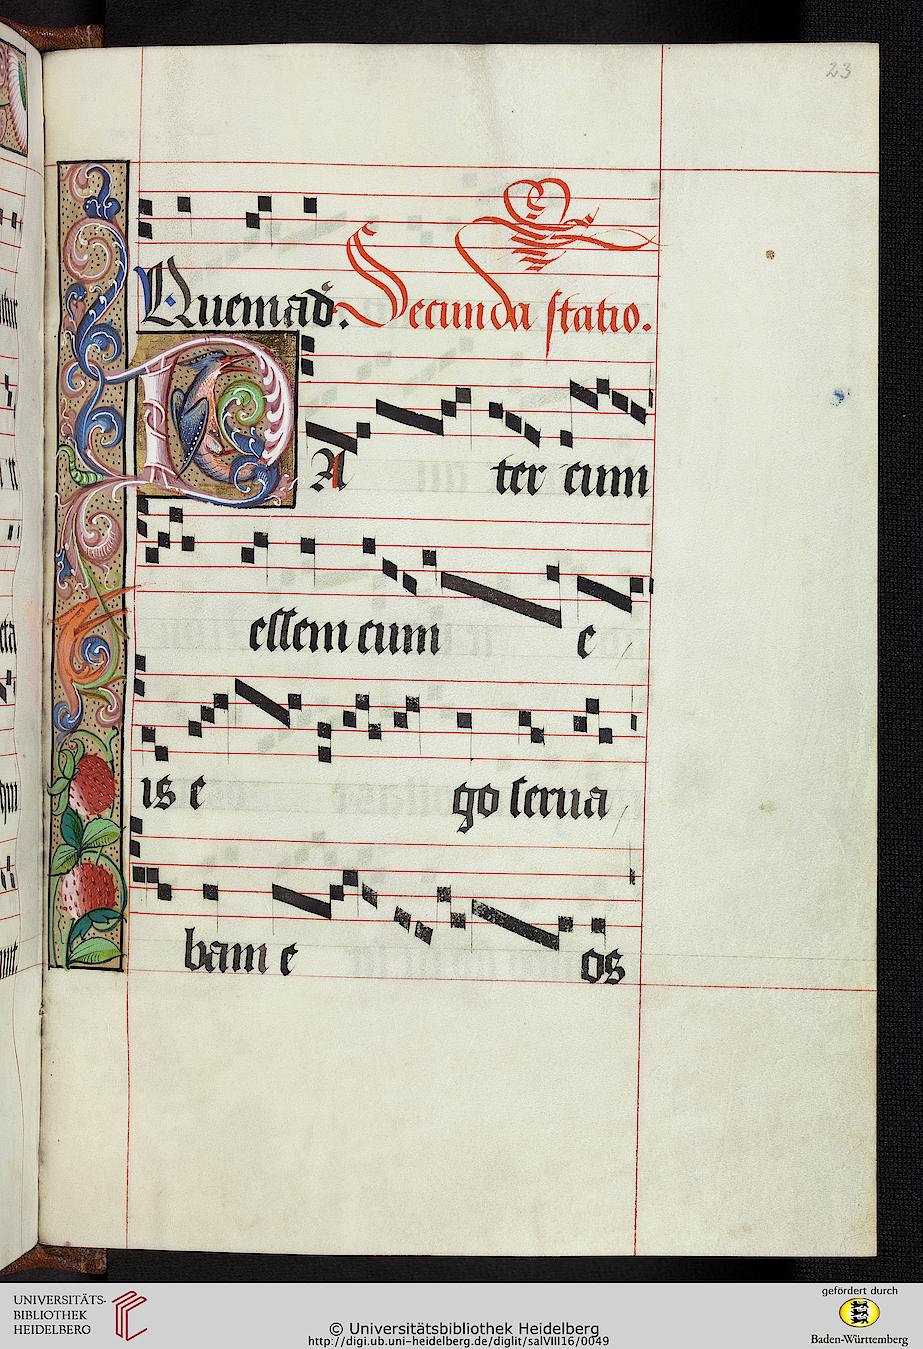 23
Quemad. Secunda statio.
PA ter cum
essem cum e
is e go serua
bam e os
UNIVERSITÄTS-
BIBLIOTHEK
HEIDELBERG
© Universitätsbibliothek Heidelberg
http://digi.ub.uni-heidelberg.de/diglit/salVIII16/0049
gefördert durch
Baden-Württemberg